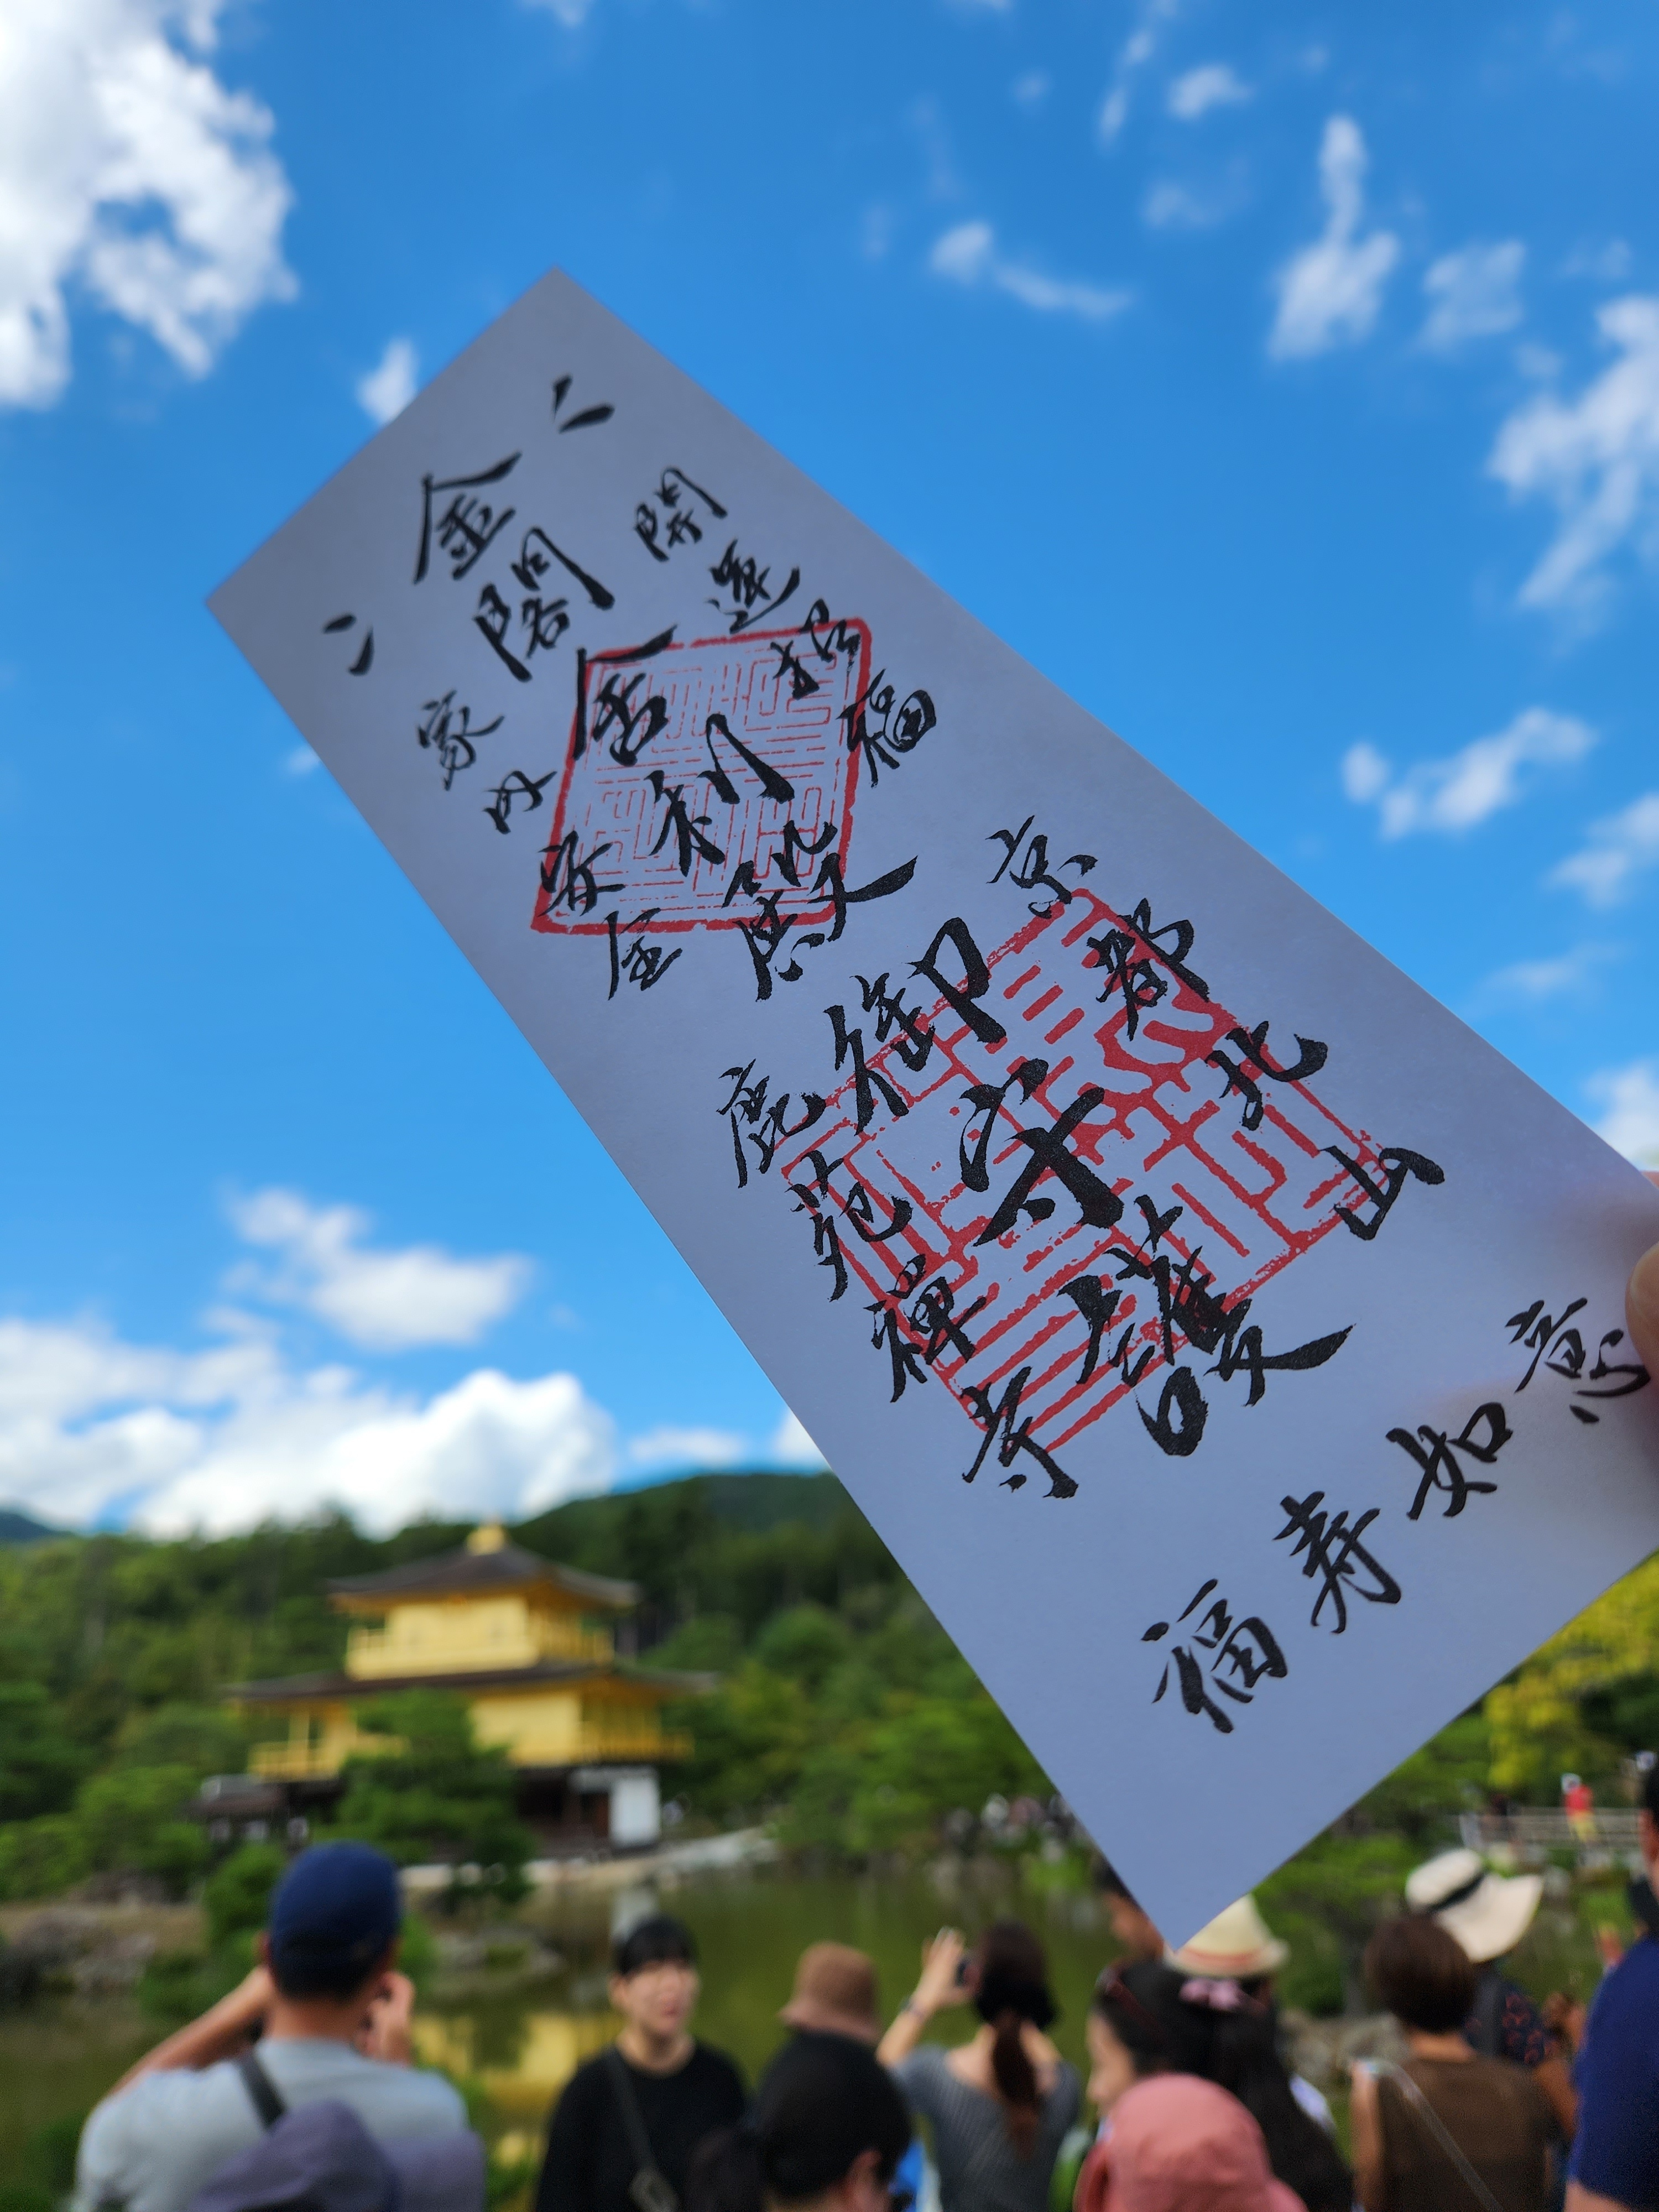 開運招福
金閣舎利殿
家内安全
京都北山
御守護
鹿苑禅寺
福寿如意